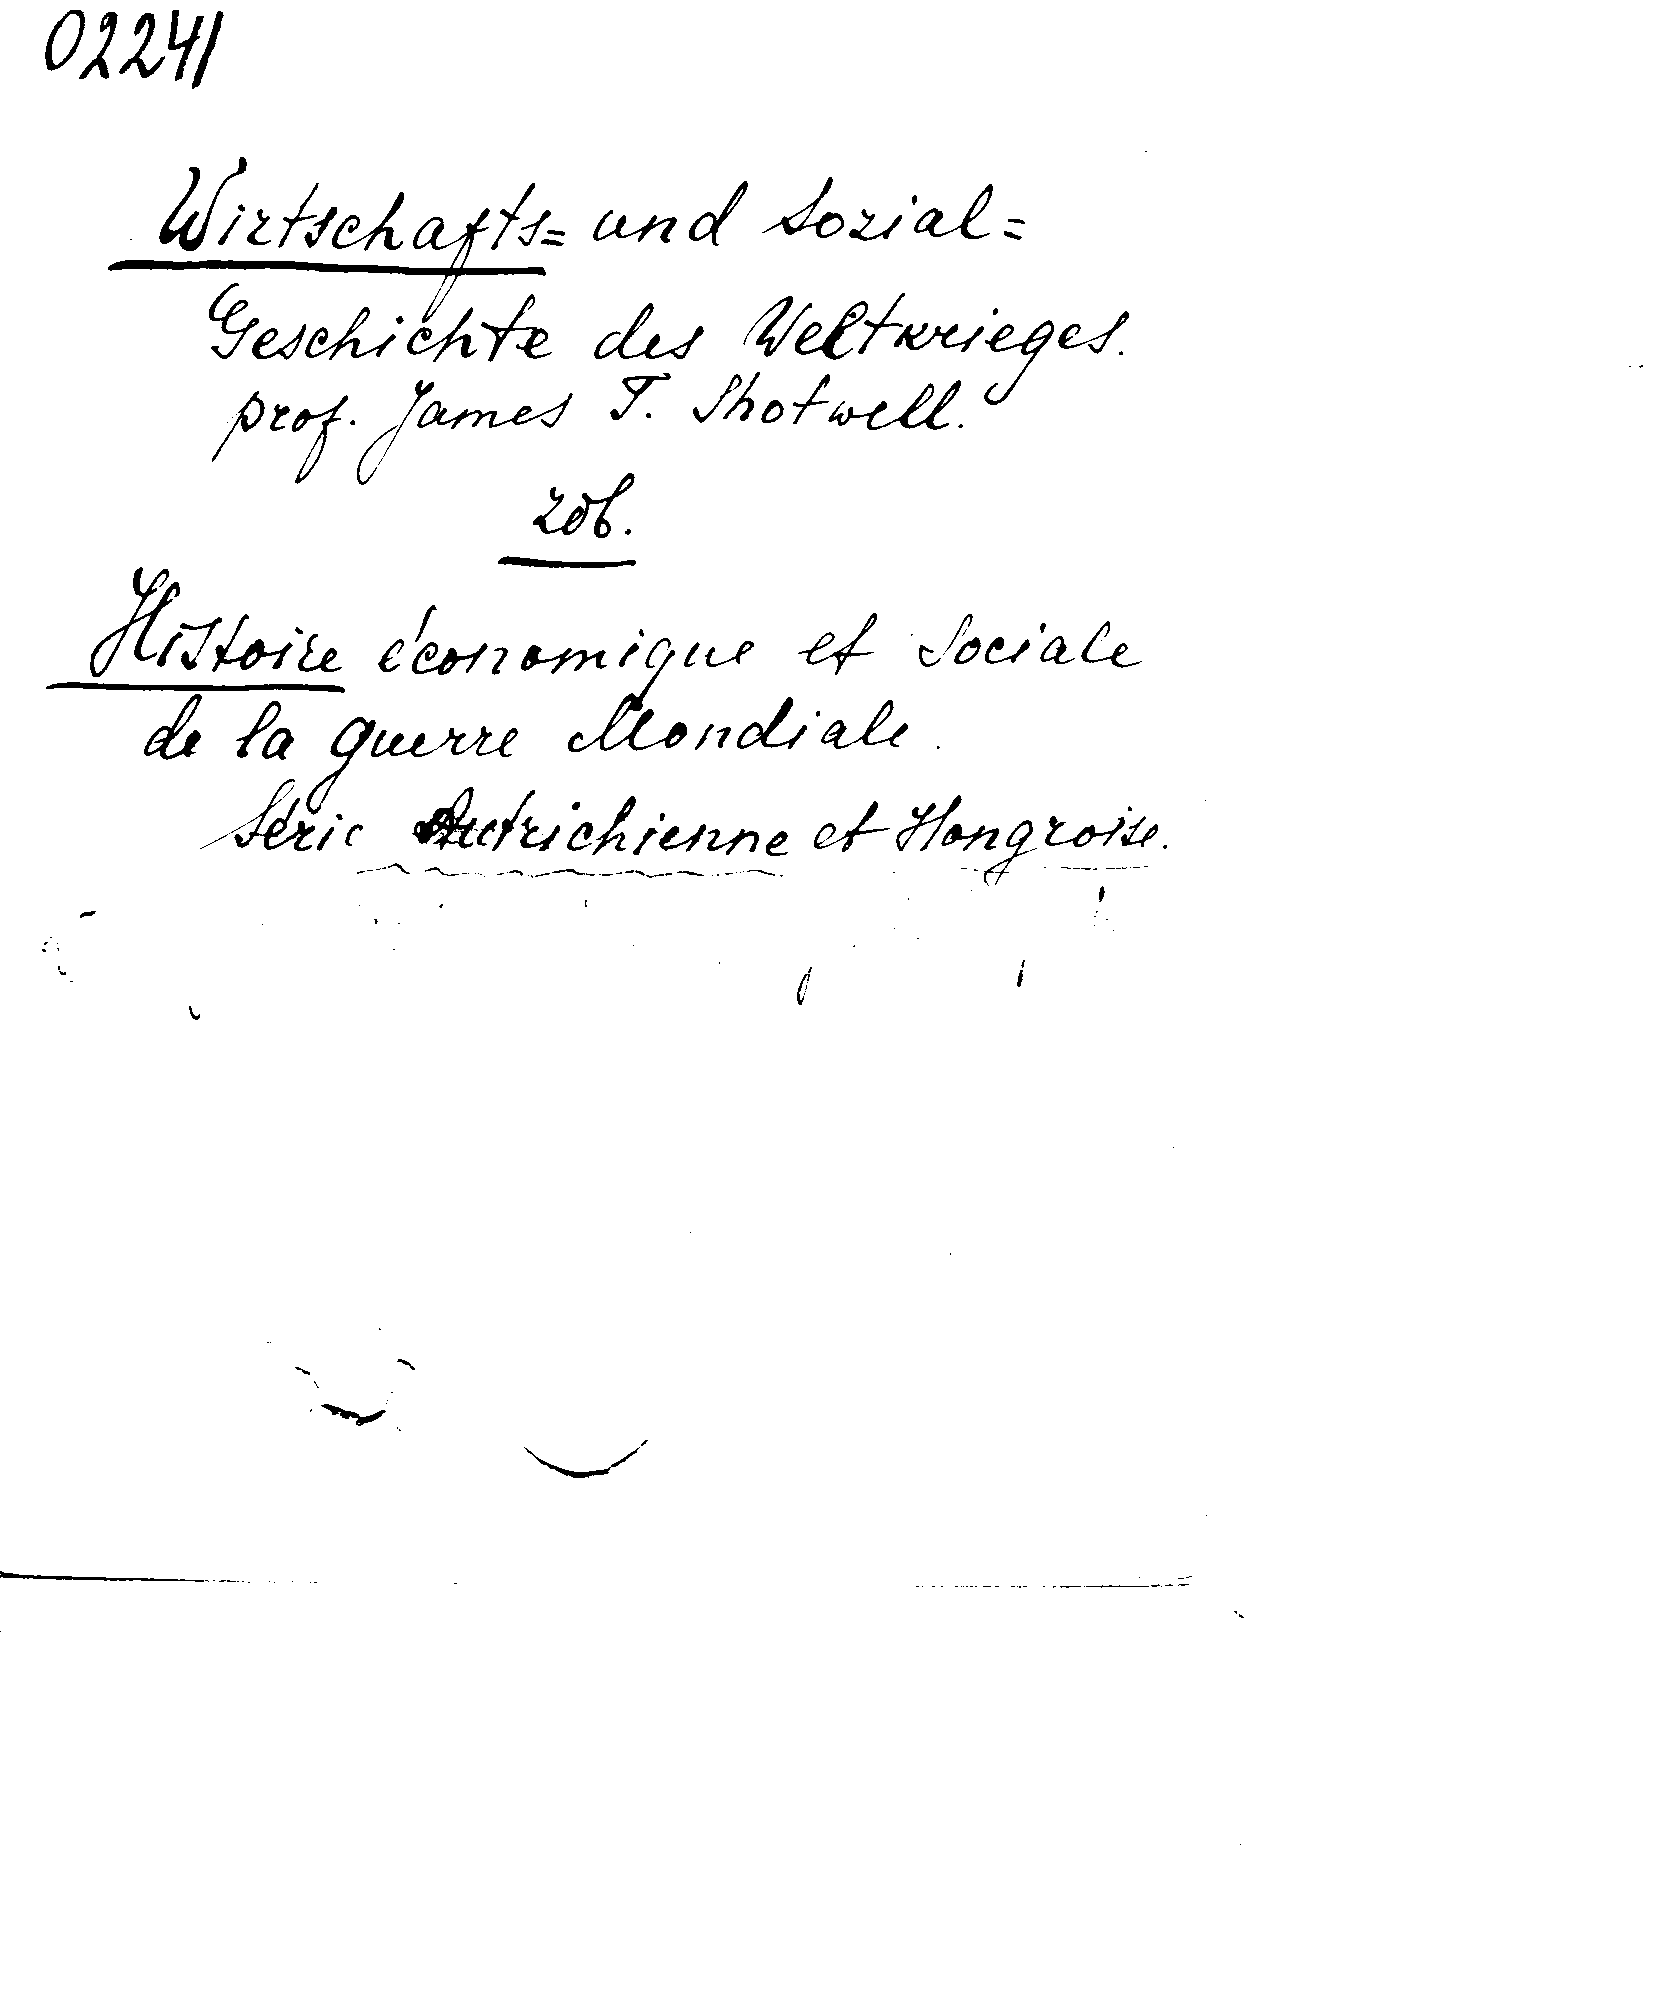 02241
Wirtschafts= und Sozial=
Geschichte des Weltkrieges.
prof. James T. Shotwell.
zob.
Histoire économique et Sociale
de la guerre Mondiale.
Série Autrichienne et Hongroise.